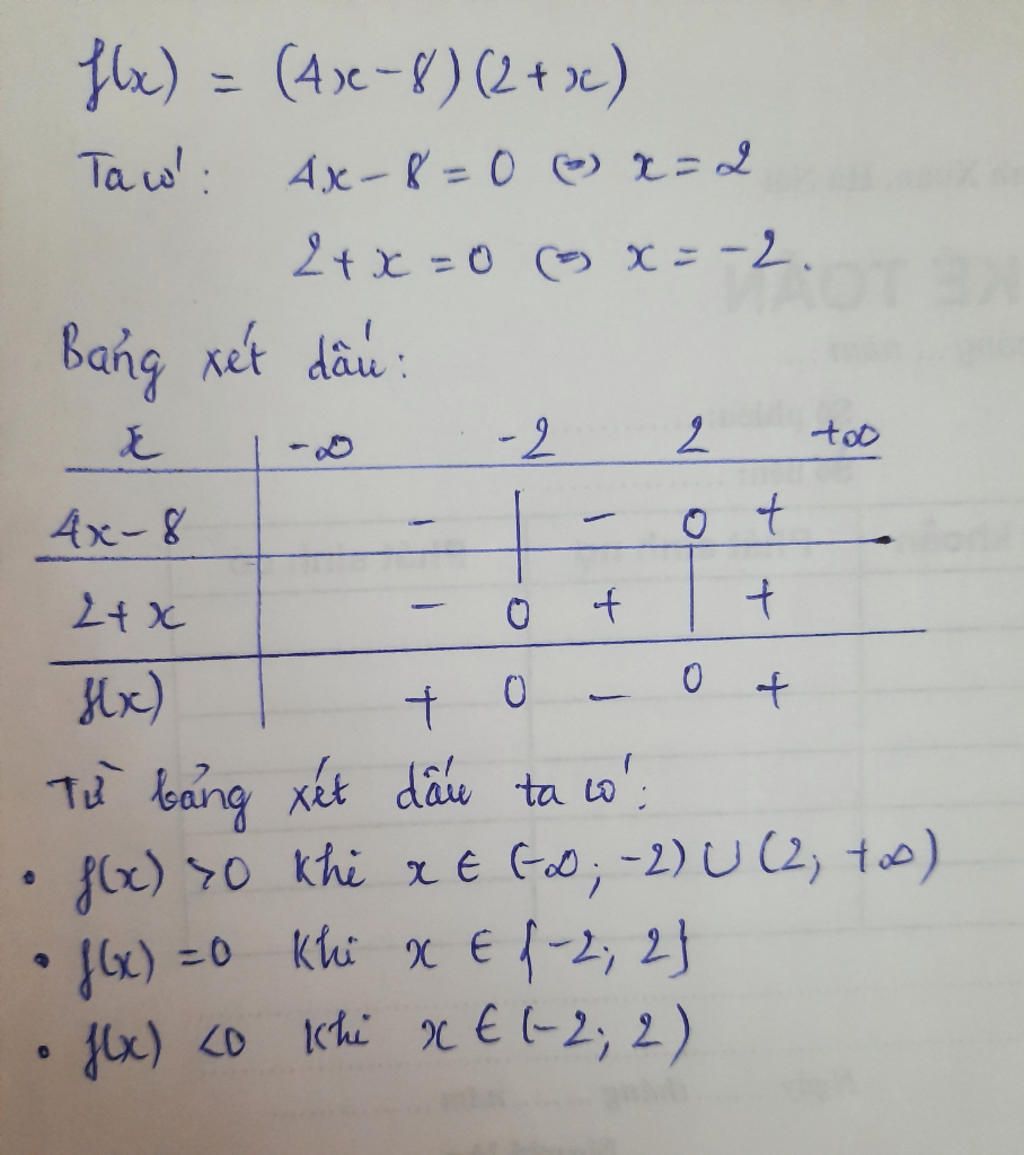 f(x) = (4x-8)(2+x)
Ta có: 4x-8=0 ⇔ x=2
2+x=0 ⇔ x=-2.
Bảng xét dấu:
x -∞ -2 2 +∞
4x-8 - | - 0 +
2+x - 0 + | +
f(x) + 0 - 0 +
Từ bảng xét dấu ta có:
• f(x) >0 khi x ∈ (-∞; -2) ∪ (2; +∞)
• f(x) =0 khi x ∈ {-2; 2}
• f(x) <0 khi x ∈ (-2; 2)